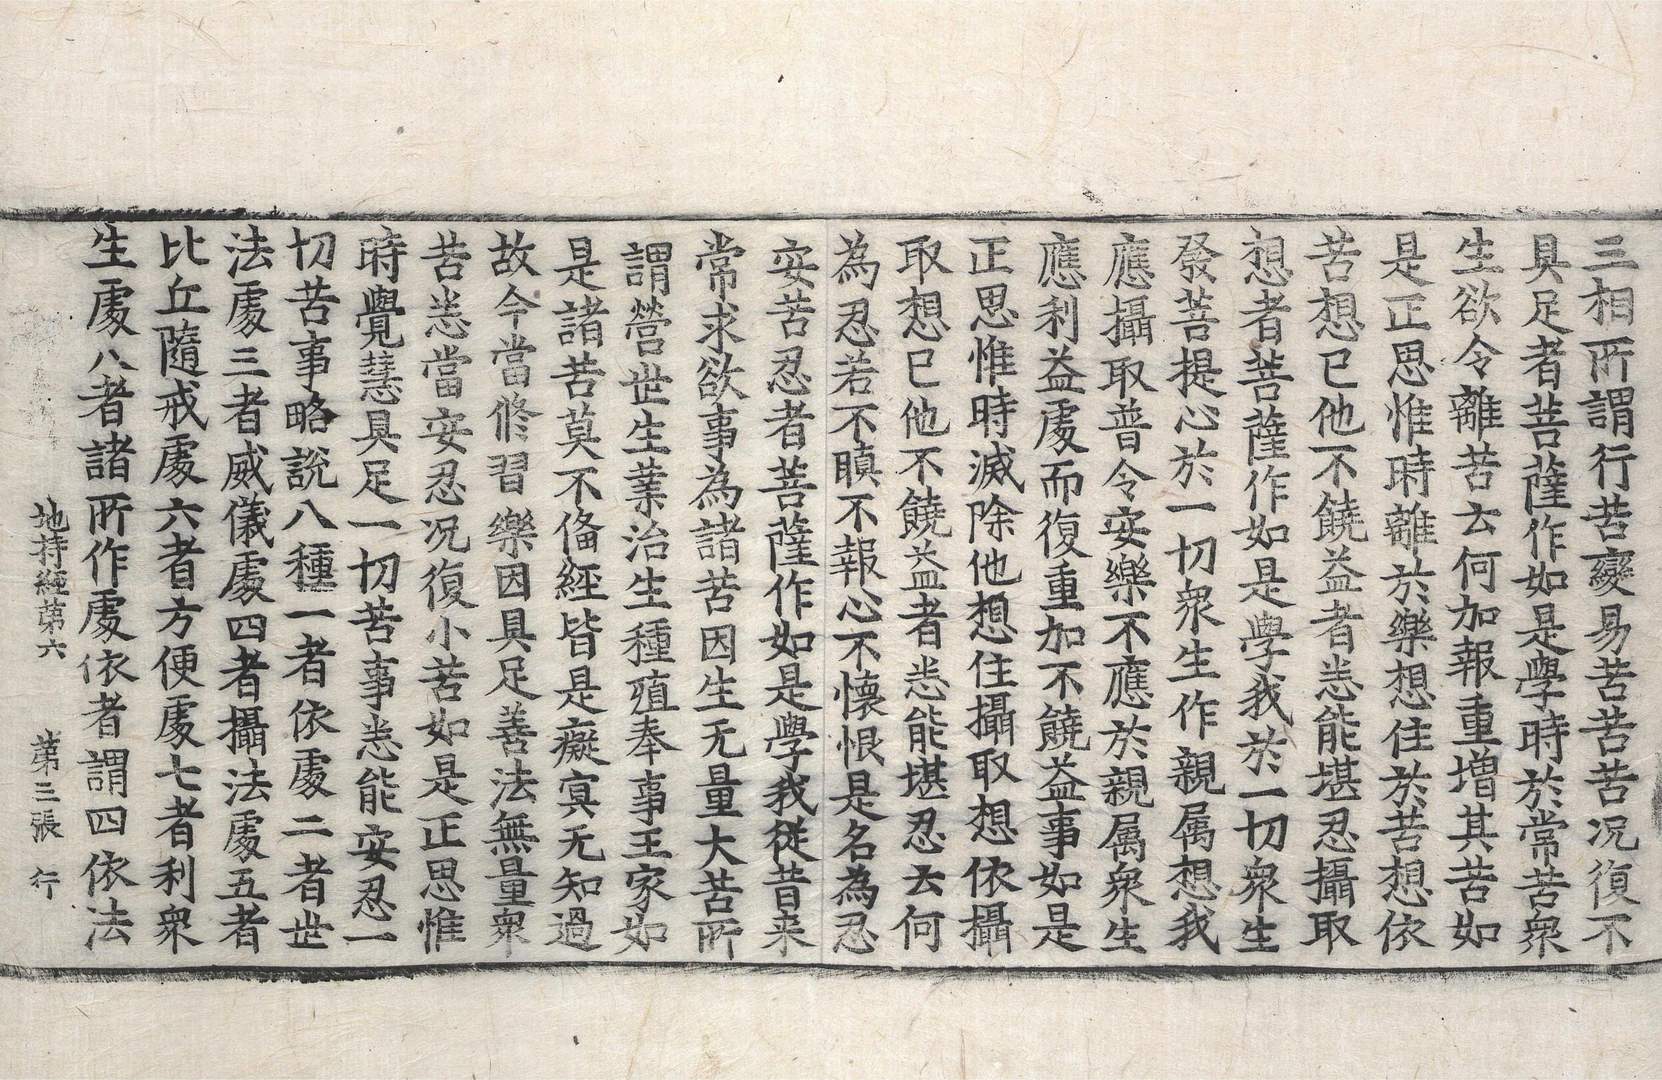 三相所謂行苦變易苦苦苦况復不
具足者菩薩作如是學時於常苦衆
生欲令離苦云何加報重增其苦如
是正思惟時離於樂想住於苦想依
苦想已他不饒益者悉能堪忍攝取
想者菩薩作如是學我於一切衆生
發菩提心於一切衆生作親属想我
應攝取普令安樂不應於親属衆生
應利益處而復重加不饒益事如是
正思惟時滅除他想住攝取想依攝
取想已他不饒益者悉能堪忍云何
為忍若不瞋不報心不懷恨是名為忍
安苦忍者菩薩作如是學我從昔来
常求欲事為諸苦因生无量大苦所
謂營世生業治生種殖奉事王家如
是諸苦莫不俻經皆是癡㝠无知過
故今當修習樂因具足善法無量衆
苦悉當安忍况復小苦如是正思惟
時覺慧具足一切苦事悉能安忍一
切苦事略說八種一者依處二者世
法處三者威儀處四者攝法處五者
比丘隨戒處六者方便處七者利衆
生處八者諸所作處依者謂四依法
地持經第六　第三張　行